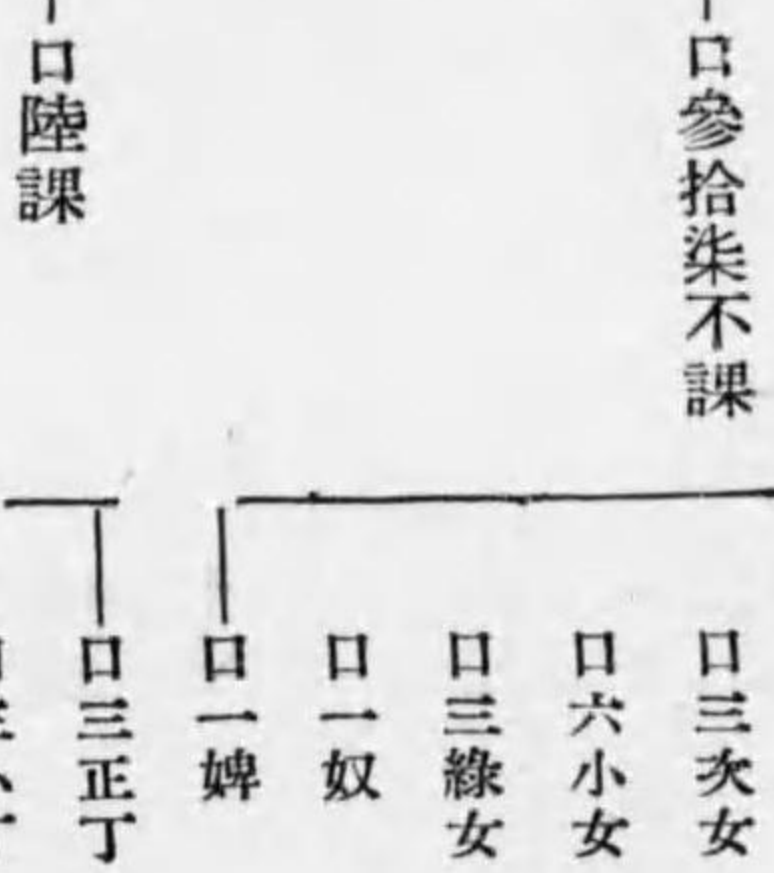 口參拾柒不課
口三次女
口六小女
口三綠女
口一奴
口一婢
口陸課
口三正丁